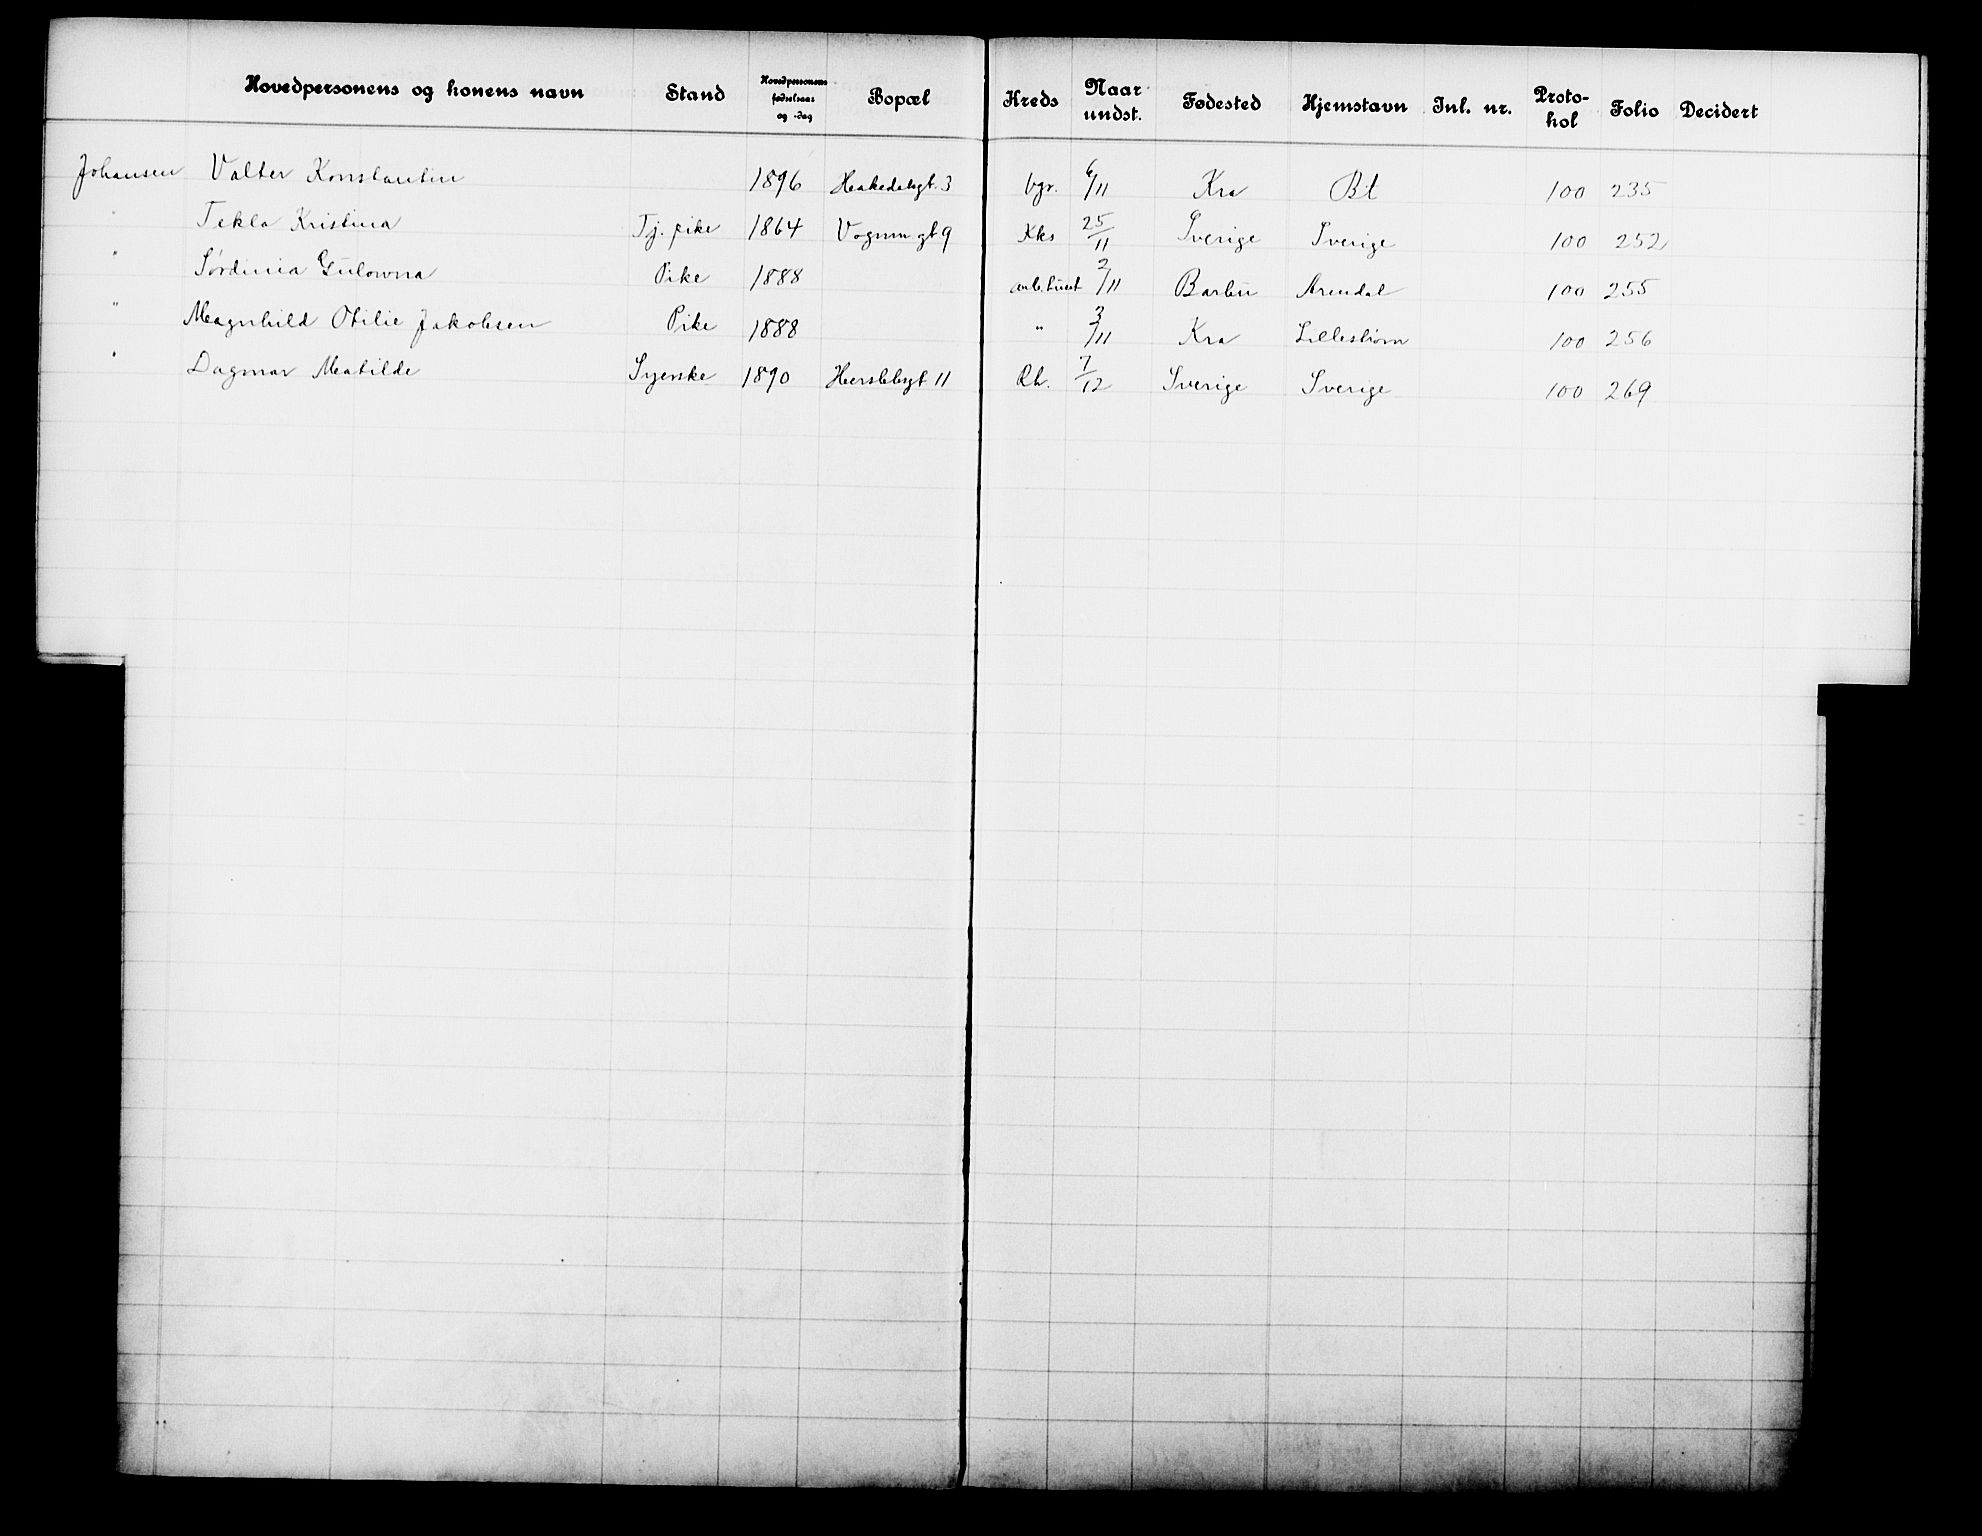 Hovedpersonens og konens navn Stand Hovedpersonens fødselsaar og -dag Bopæl Kreds Naar undst. Fødested Hjemstavn Inl. nr. Proto-kol Folio Decidert
Johansen Valter Konstantin 1896 Hakedalsgt. 3 Vgr. 6/11 Kra Bt 100 235
" Tekla Kristina Tj. pike 1864 Vognm.gt 9 Kks 25/11 Sverige Sverige 100 252
" Sørdinia Gulowna Pike 1888 2/11 Barbu Arendal 100 255
" Magnhild Otilie Jakobsen Pike 1888 " 3/11 Kra Lillestrøm 100 256
" Dagmar Matilde Syerske 1890 Herslebsgt 11 7/12 Sverige Sverige 100 269